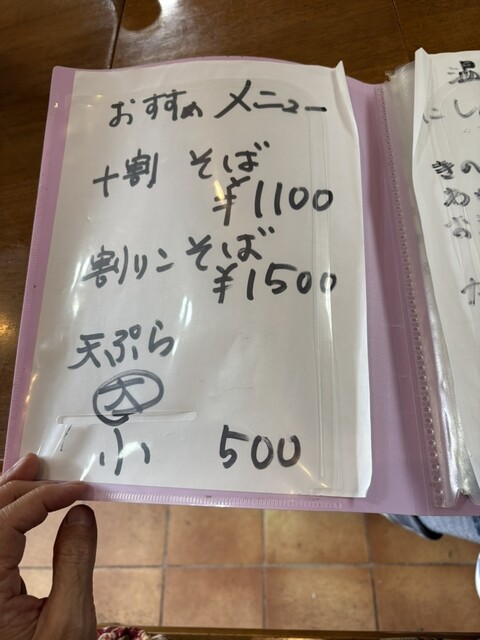 おすすめ メニュー
十割 そば
¥1100
割リン そば
¥1500
天ぷら
大
小 500
温
にし
きの